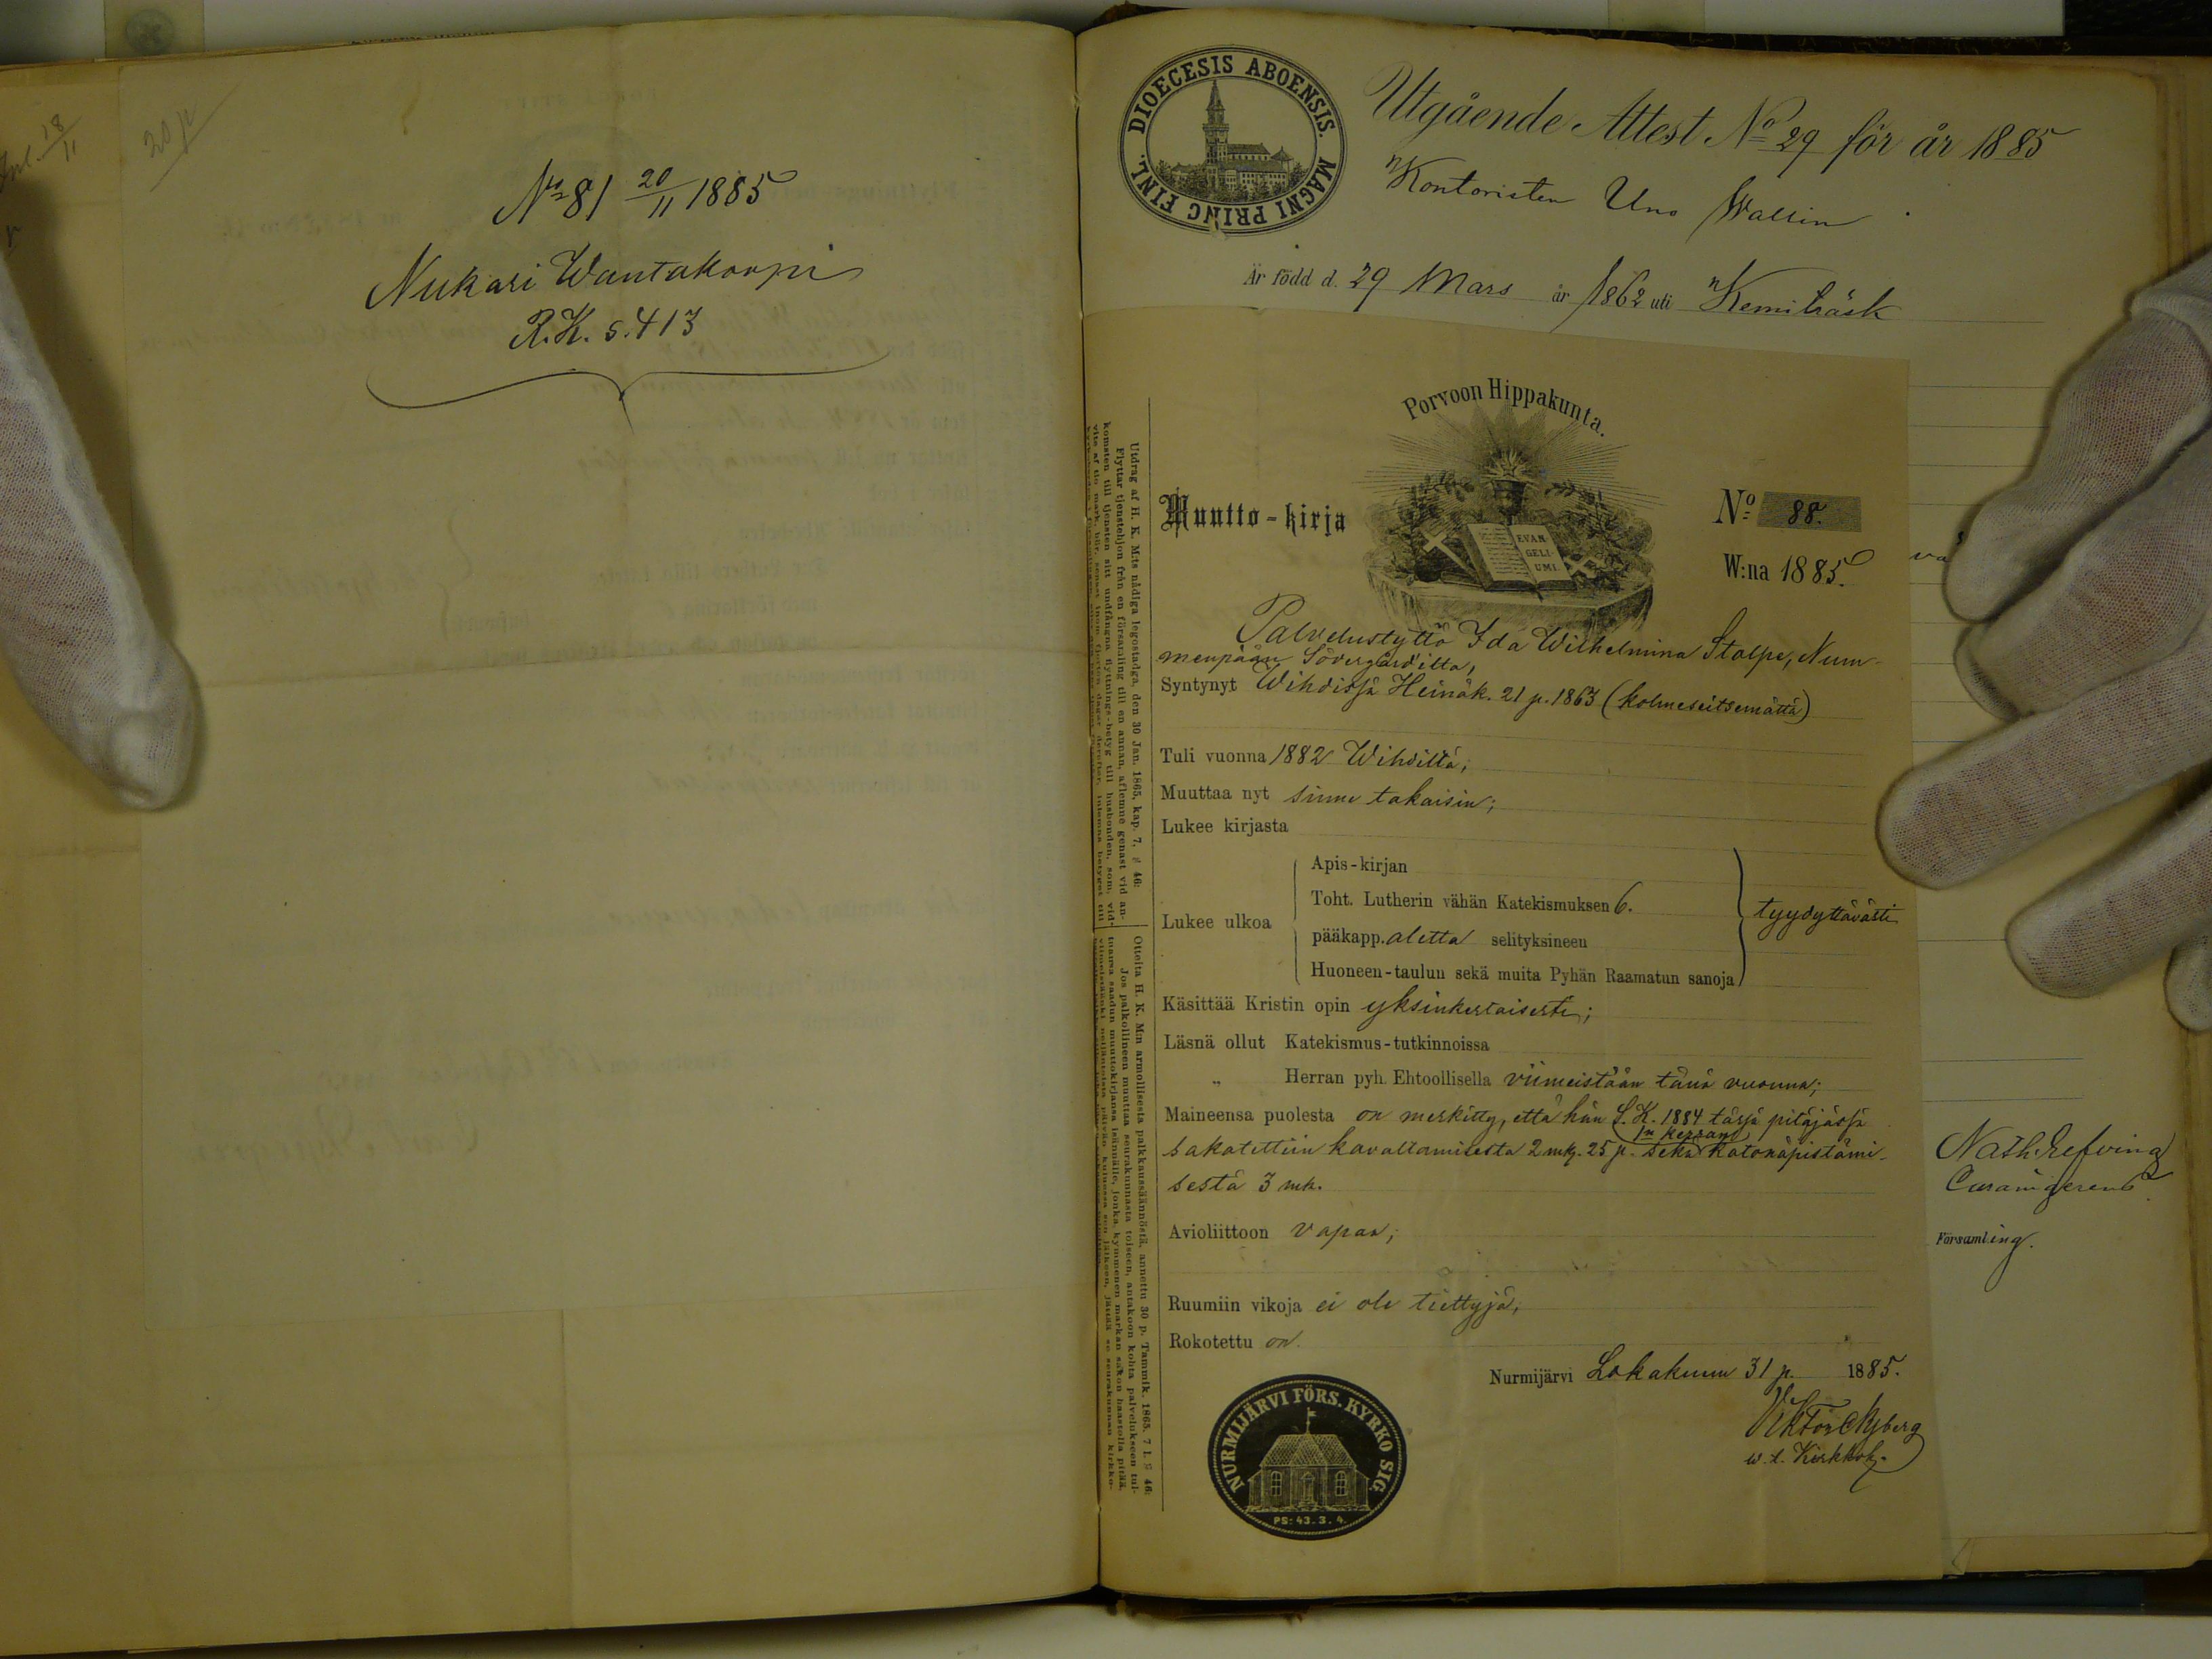 20 p
Inl. 18/11
No 81 20/11 1885
Nukari Wantakorpi
R.K. s. 413
DIOECESIS ABOENSIS. MAGNI PRINC FINL.
Utgående Attest No 29 för år 1885
Kontoristen Uno Wallin
Är född d. 29 Mars år 1862 uti Kemiträsk
Porvoon Hippakunta.
EVAN-
GELI-
UMI.
Muutto-kirja
No 88.
W:na 1885.
Palvelustyttö Ida Wilhelmina Stolpe, Num-
menpään Södergårdilta,
Syntynyt Wihdissä Heinäk. 21 p. 1863 (kolmeseitsemättä)
Tuli vuonna 1882 Wihdiltä;
Muuttaa nyt sinne takaisin;
Lukee kirjasta
Lukee ulkoa
Apis-kirjan
Toht. Lutherin vähän Katekismuksen 6.
pääkapp. aletta selityksineen
Huoneen-taulun sekä muita Pyhän Raamatun sanoja
tyydyttävästi
Käsittää Kristin opin yksinkertaisesti;
Läsnä ollut Katekismus-tutkinnoissa
„ Herran pyh. Ehtoollisella viimeistään tänä vuonna;
Maineensa puolesta on merkitty, että hän S.K. 1884 tässä pitäjässä
1n kerran
sakotettiin kavaltamisesta 2 mk. 25 p. sekä katonäpistämi-
sestä 3 mk.
Avioliittoon vapaa;
Ruumiin vikoja ei ole tiettyjä;
Rokotettu on.
Nurmijärvi Lokakuun 31 p. 1885.
Viktor Nyberg
w. t. Kirkkoh.
NURMIJÄRVI FÖRS. KYRKO SIG.
PS: 43. 3. 4.
Utdrag af H. K. M:ts nådiga legostadga, den 30 Jan. 1865, kap. 7, § 46:
Flyttar tjenstehjon från en församling till en annan, aflemne genast vid an-
komsten till tjensten sitt undfångna flyttnings-betyg till husbonden, som, vid
Otteita H. K. M:n armollisesta palkkaussäännöstä, annettu 30 p. Tammik. 1865. 7 l. § 46:
Jos palkollineen muuttaa seurakunnasta toiseen, antakoon kohta palvelukseen tul-
tuansa saadun muuttokirjansa isännälle, jonka, kymmenen markan sakon haastolla pitää,
Nath. Refving
Församling.